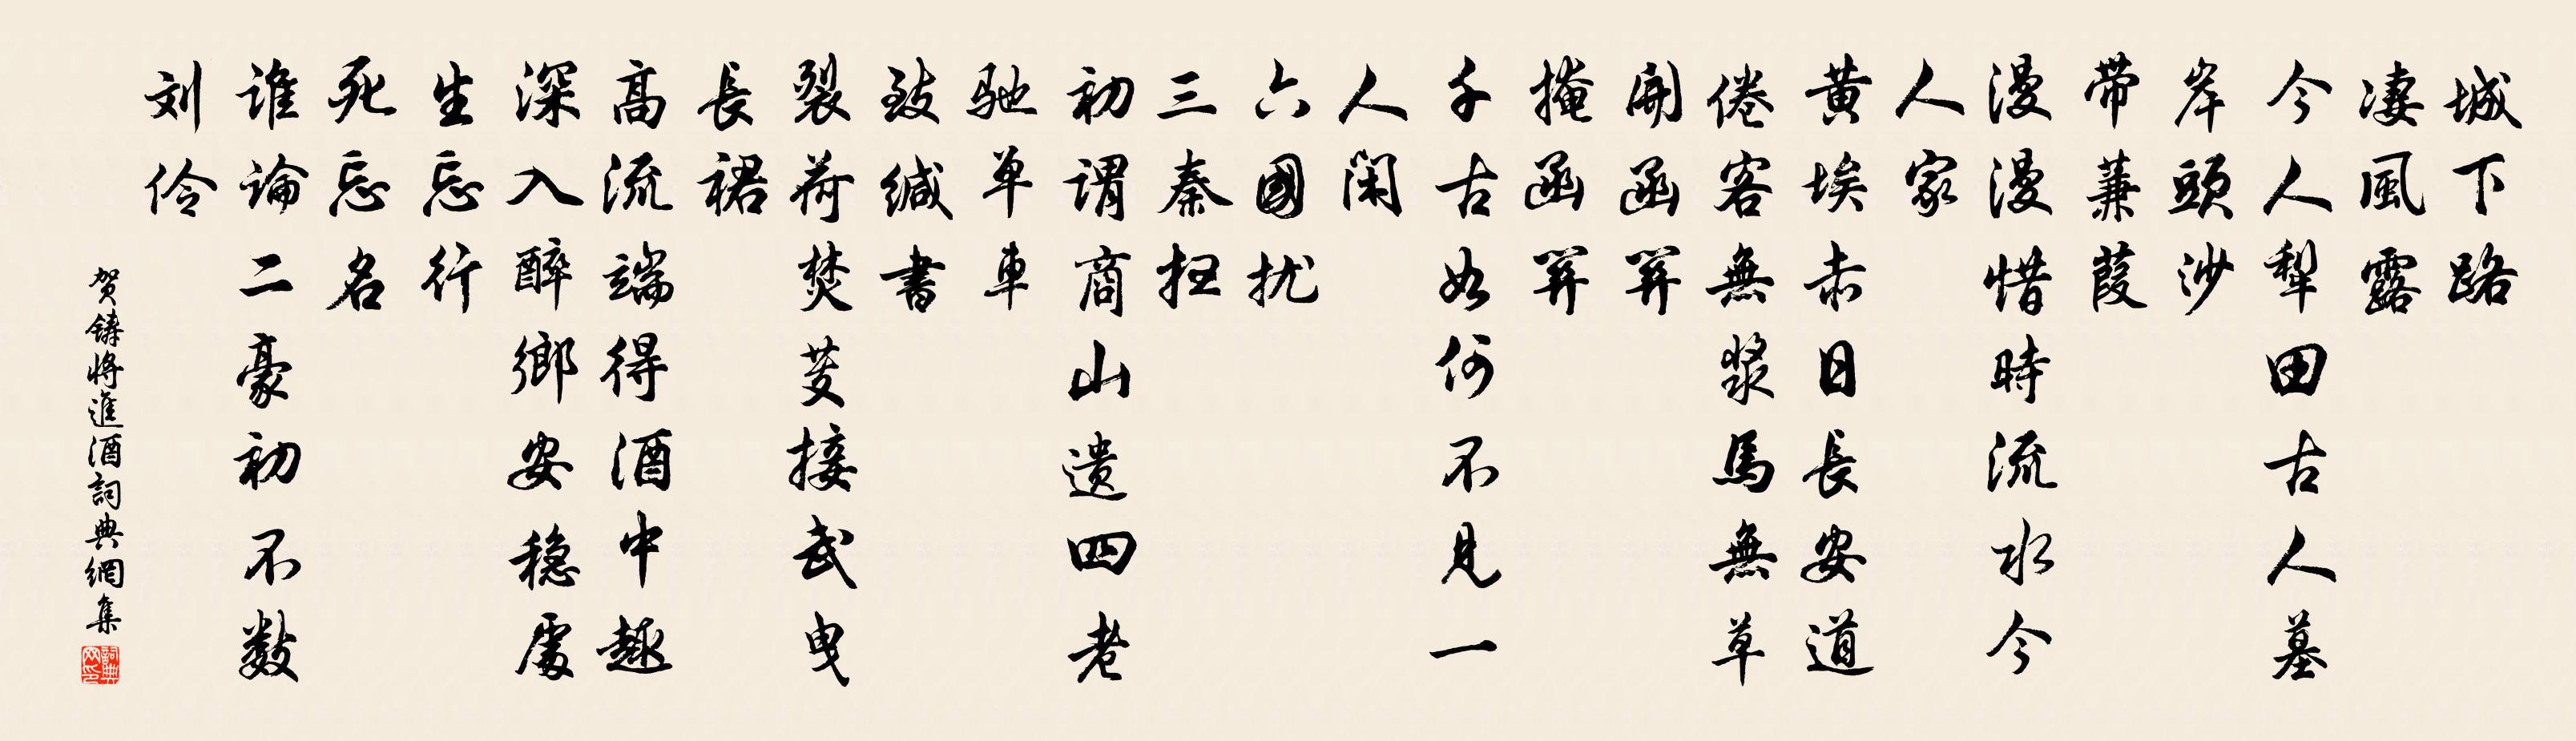 城下路
凄風露
今人犁田古人墓
岸頭沙
带蒹葭
漫漫惜時流水今
人家
黄埃赤日長安道
倦客無漿馬無草
開函關
掩函關
千古如何不見一
人閑
六國扰
三秦扫
初謂商山遗四老
驰單車
致缄書
裂荷焚芰接武曳
長裙
高流端得酒中趣
深入醉鄉安稳處
生忘行
死忘名
谁論二豪初不数
刘伶
贺鑄將進酒詞典網集
詞典网印